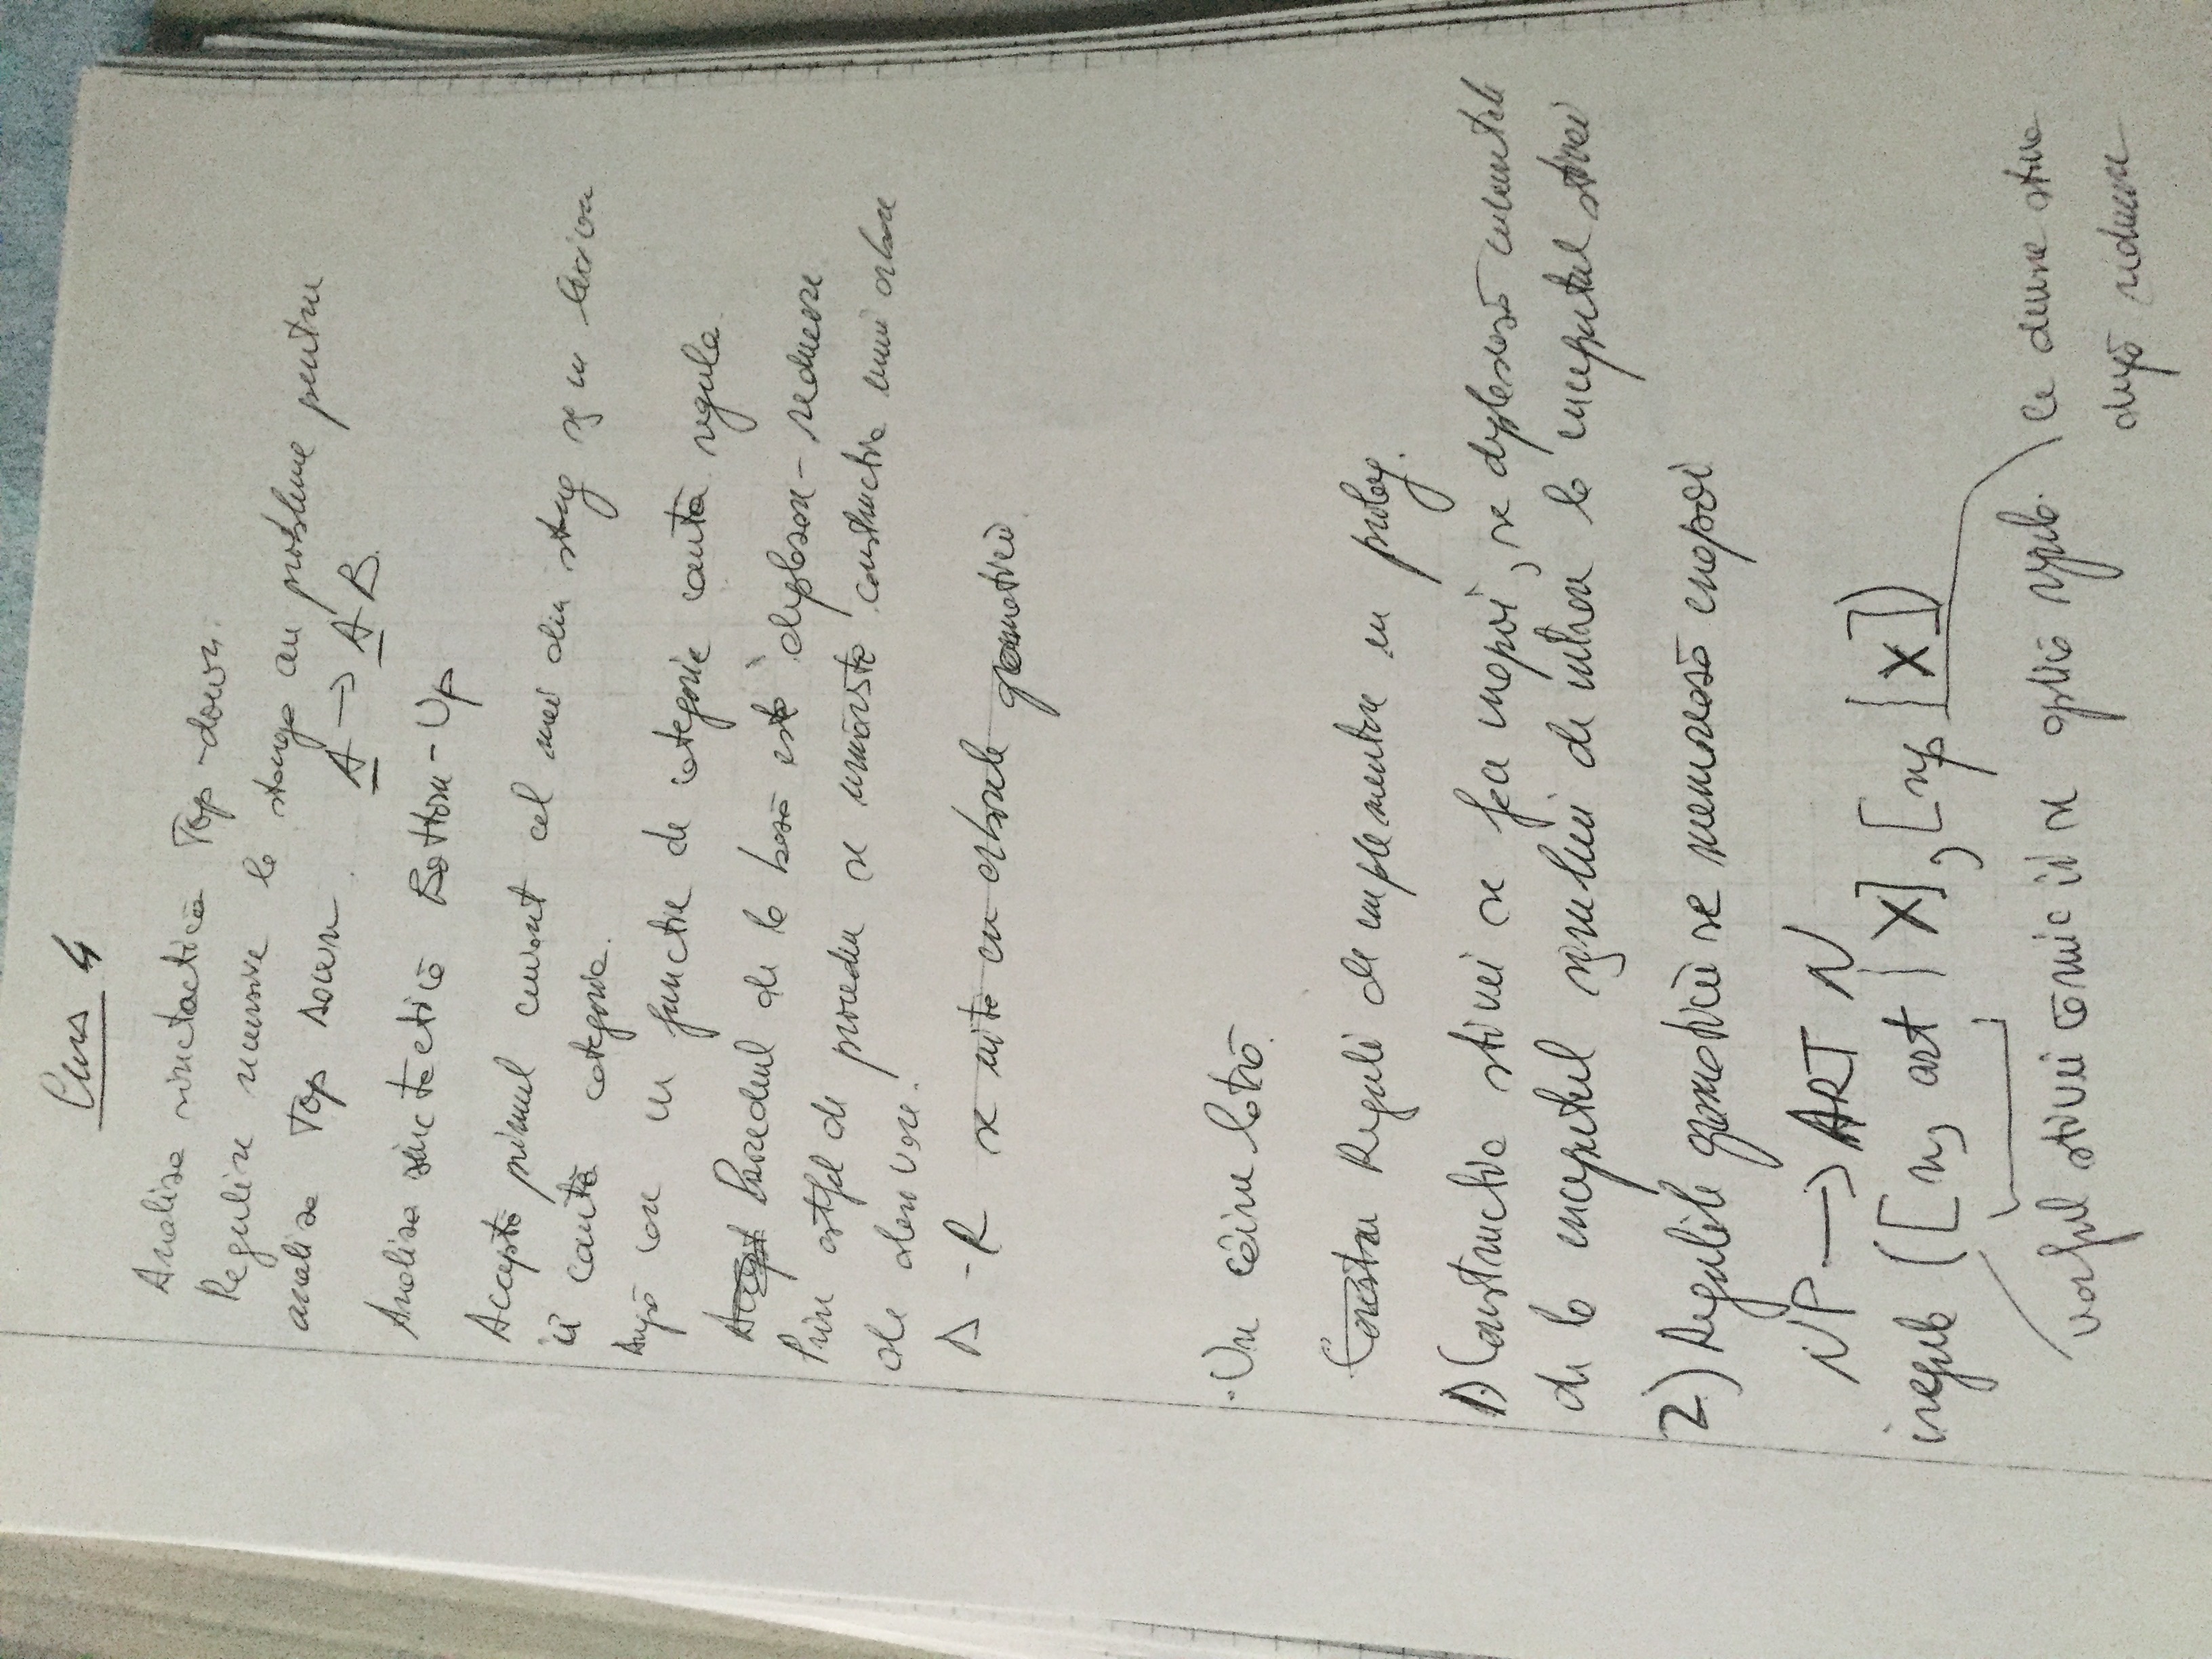 Curs 4
Analiza sinctactică Top-down.
Regulire recursive la stanga au probleme pentru
analiza Top Down. A → A B.
Analiza sinctactică Bottom-Up
Acceptă primul cuvant cel mai din stang și in lexicon
îi caută categoria.
După care in functie de categorie caută regula
Accept Procedeul de la bază este deplasare-reducere
Prin astfel de procedeu se urmărește constructia unui arbore
de derivare.
D-R se uită cu arborele gramaticii
·Un câine latră.
Constru Reguli de implementare in prolog.
1) Constructia stivei se face inapoi, se deplasează cuvintele
de la inceputul șirului de intrare la inceputul stivei
2) Regulile gramaticii se memorează inapoi
NP → ART N
iregula ([n, art | X], [np | X])
varful stivei căruia ii se aplică regula. Ce devine stiva
după reducere